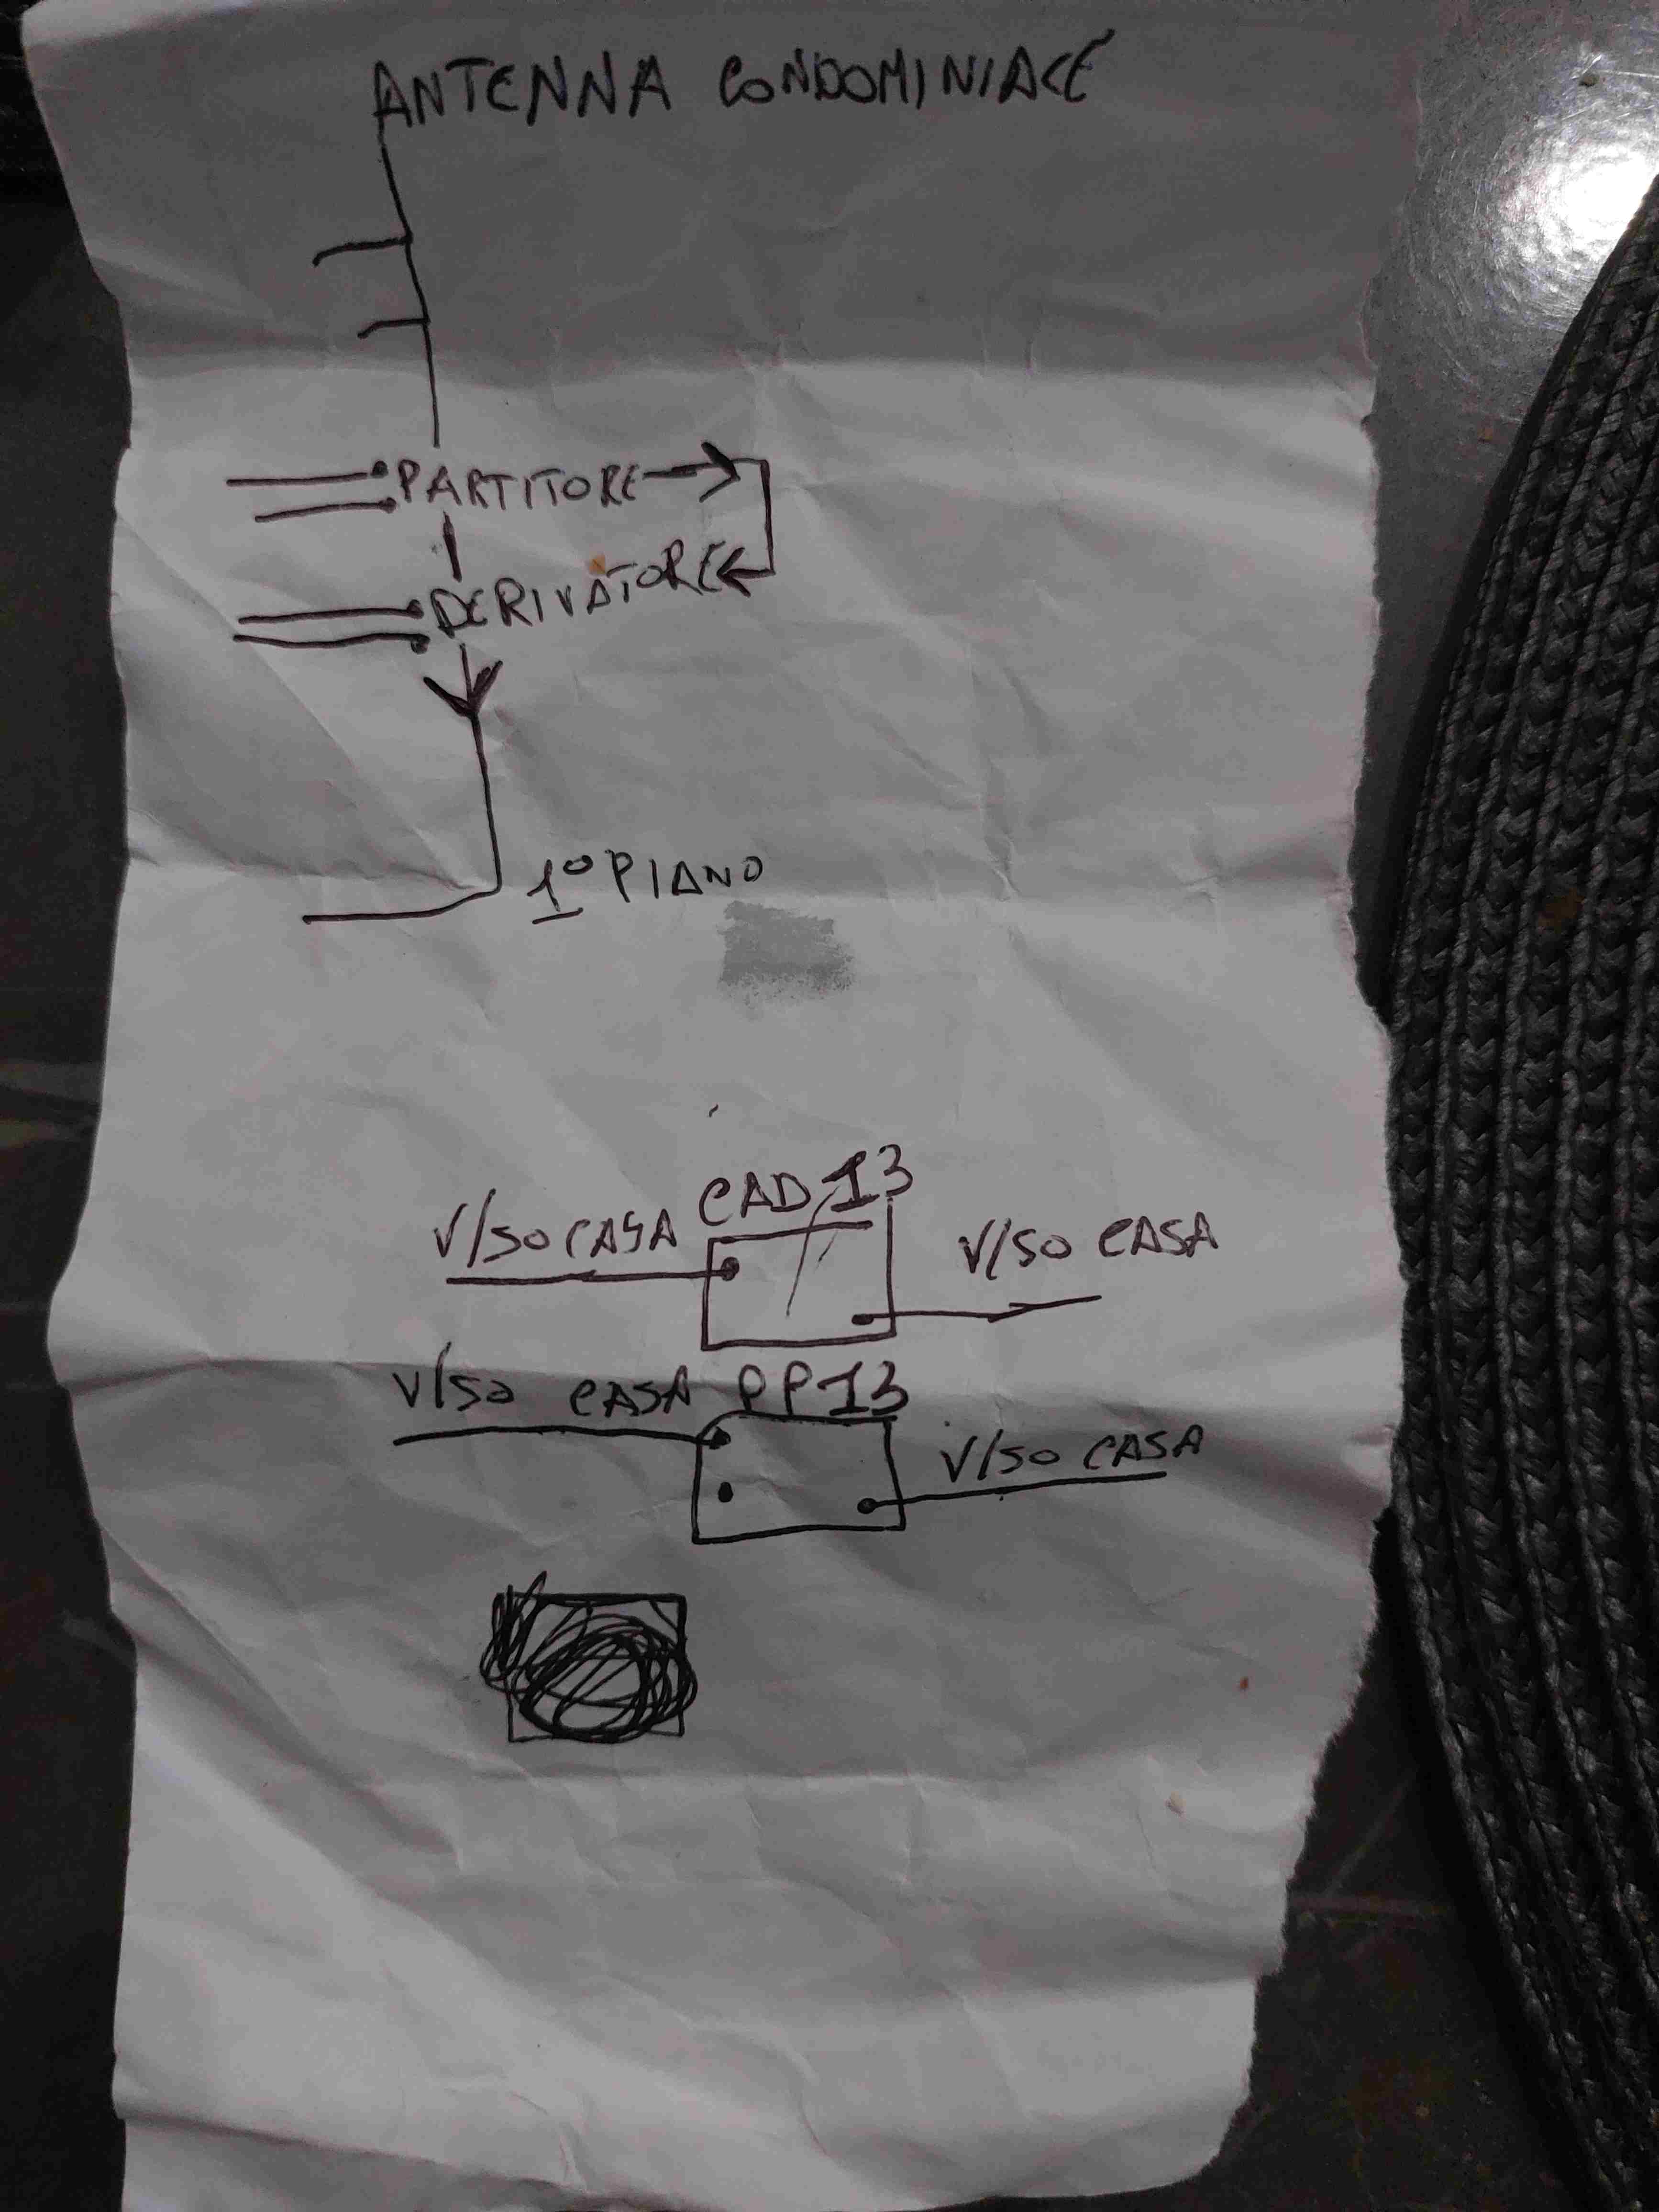 ANTENNA CONDOMINIALE
PARTITORE
DERIVATORE
1º PIANO
CAD13
V/SO CASA
V/SO CASA
V/SO CASA PP13
V/SO CASA